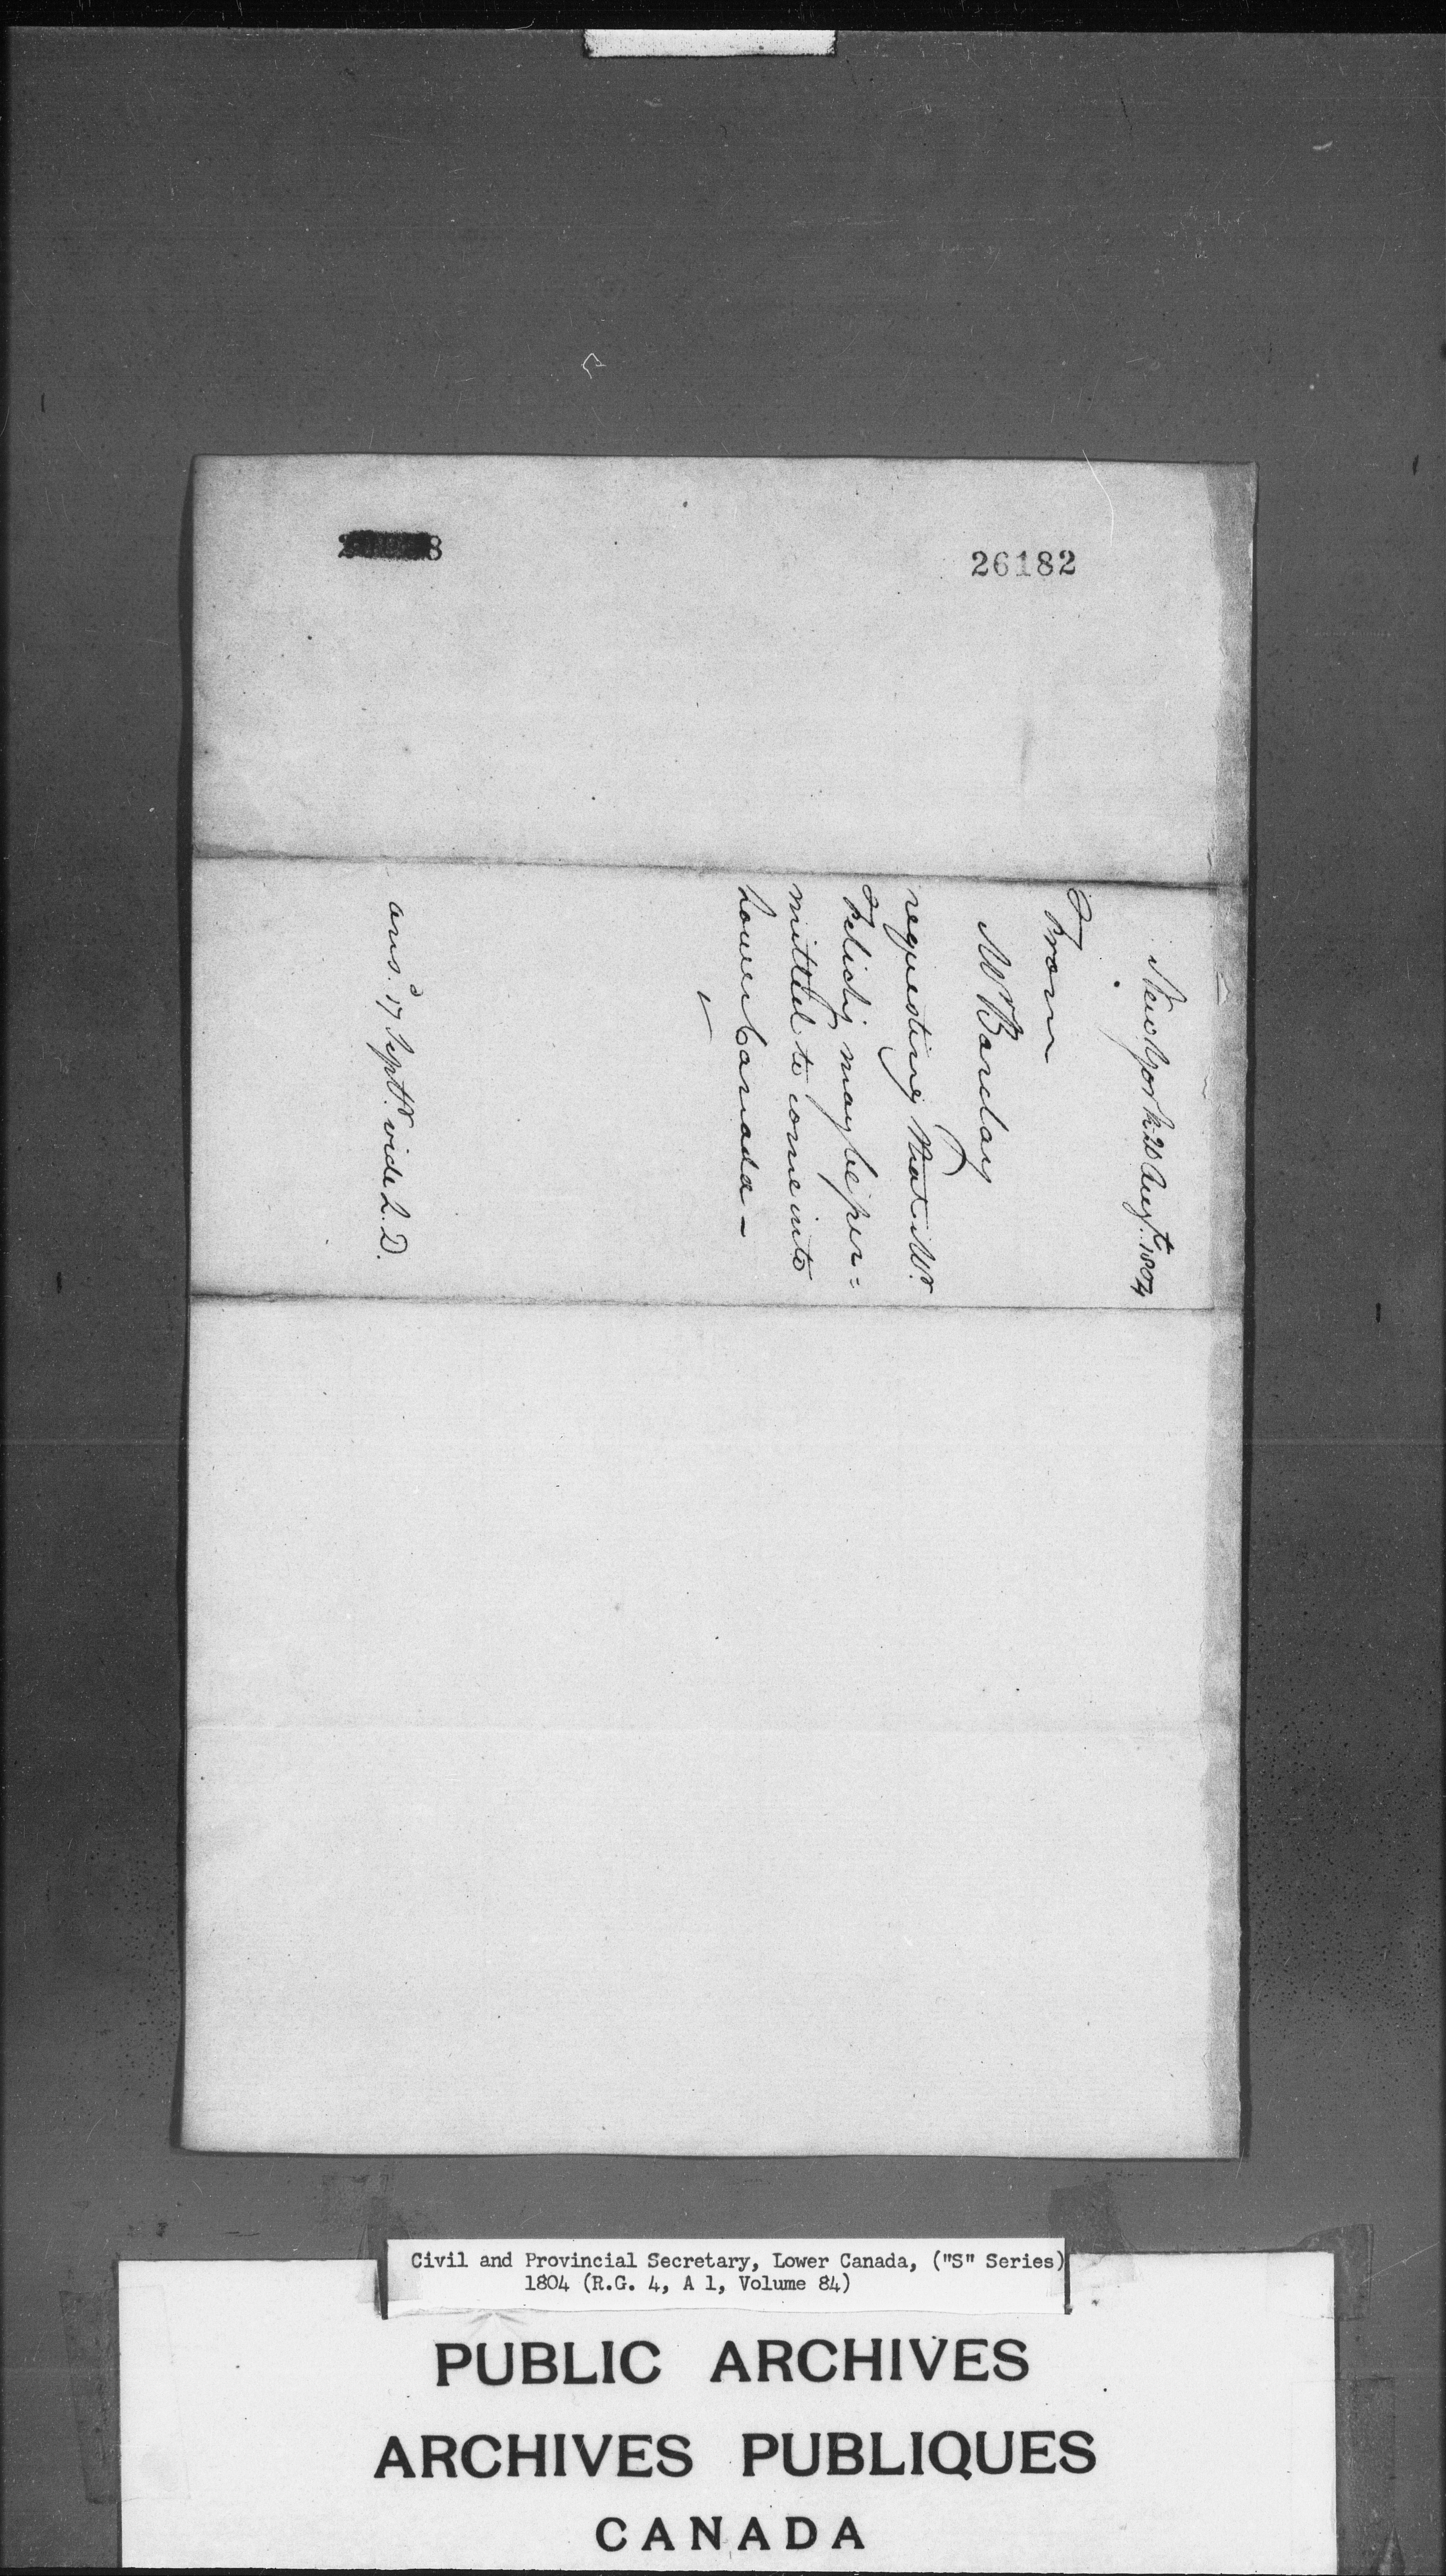 26182
New York 20 Augt. 1804
From
Mr Barclay
requesting that Mr.
Felichy may be per=
mitted to come into
Lower Canada —
ansd. 17 Septr. vide L. D.
Civil and Provincial Secretary, Lower Canada, ("S" Series)
1804 (R.G. 4, A 1, Volume 84)
PUBLIC ARCHIVES
ARCHIVES PUBLIQUES
CANADA